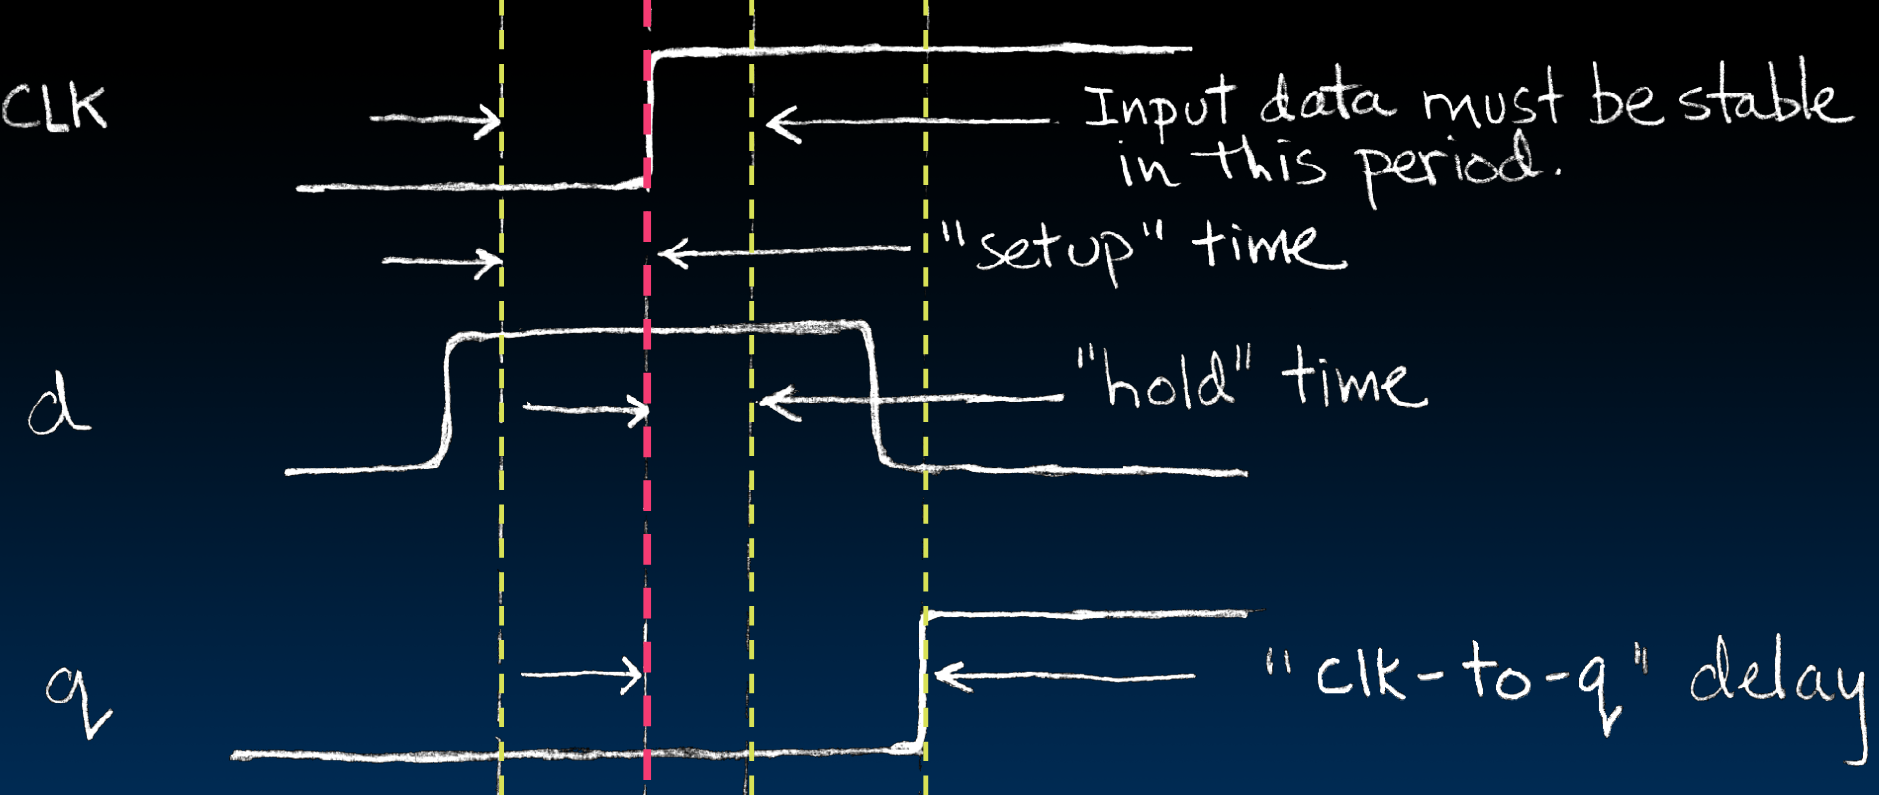 CLK
Input data must be stable
in this period.
"setup" time
d
"hold" time
q
"clk-to-q" delay